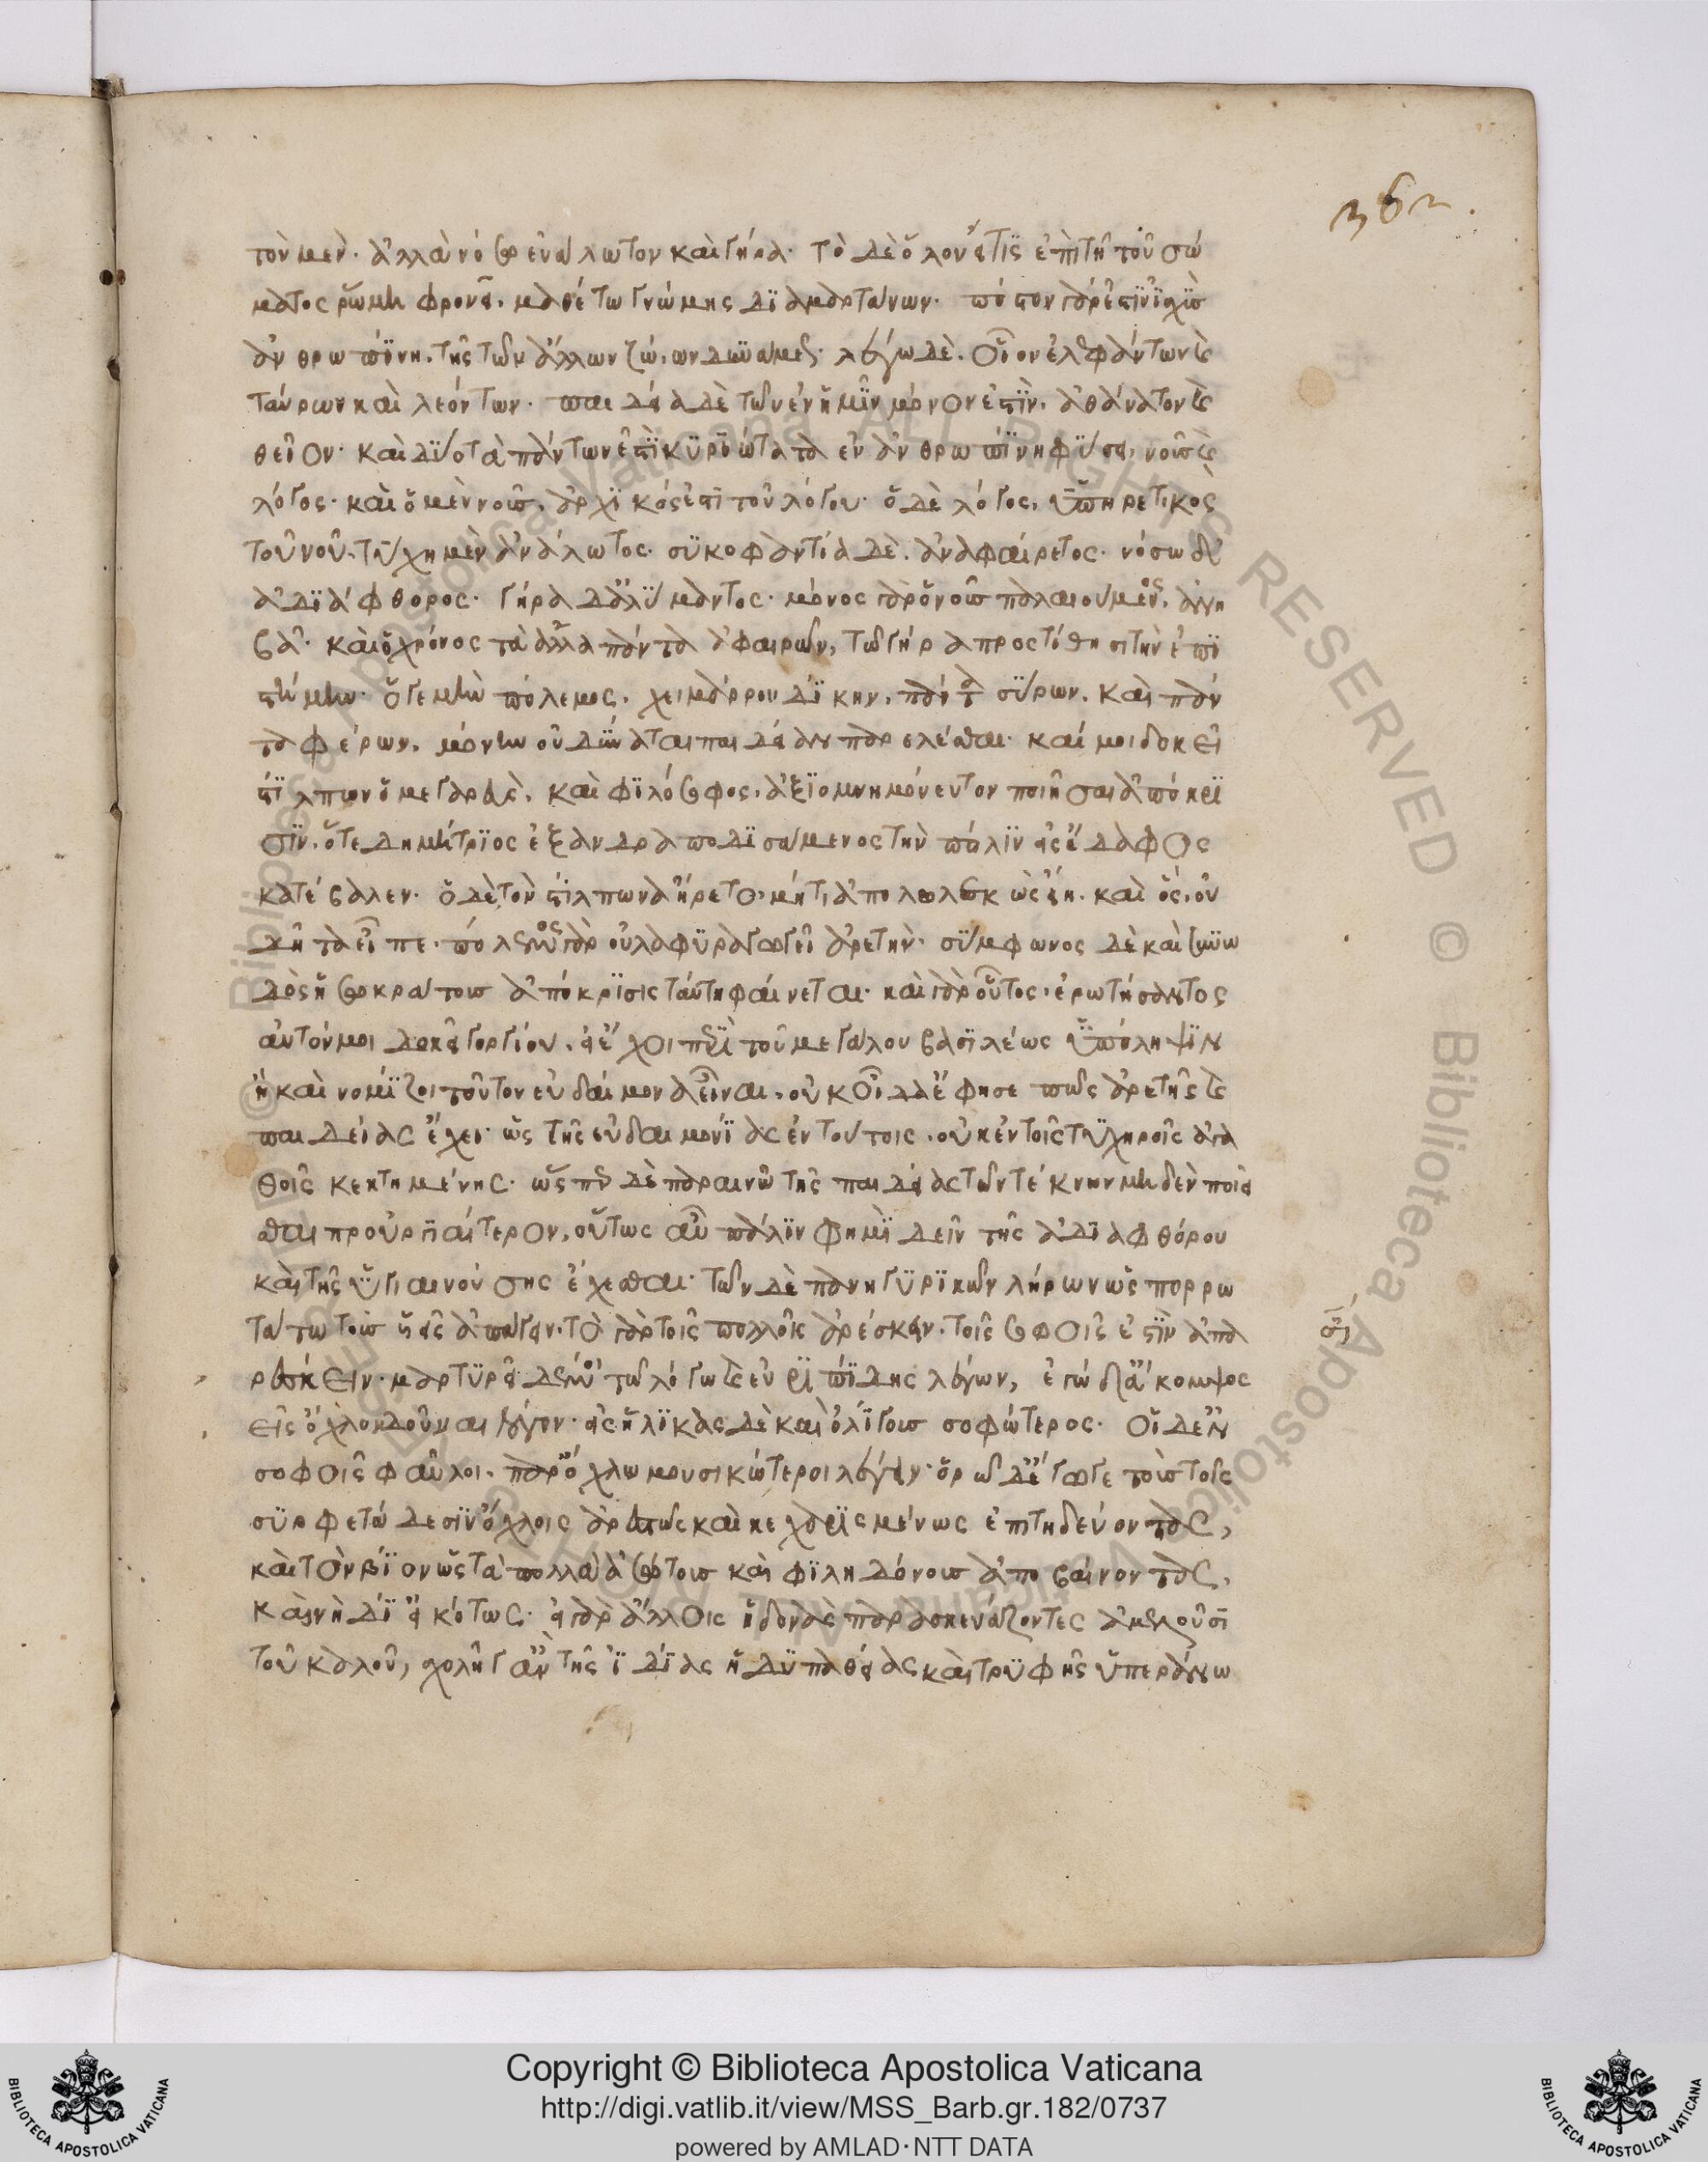 362.
τὸν μὲν. ἀλλὰ νόσω εὐάλωτον καὶ γήρα. τὸ δὲ ὅλον εἴ τις ἐπὶ τῆ τοῦ σώ
ματος ῥώμη φρονεῖ. μαθέτω γνώμης διαμαρτάνων. πόστον γάρ ἐστιν ἰσχὺς
ἀνθρωπίνη. τῆς τῶν ἄλλων ζώων δυνάμεως. λέγω δὲ. οἷον ἐλεφάντων καὶ
ταύρων καὶ λεόντων. παιδεία δὲ τῶν ἐν ἡμῖν μόνον ἐστὶν. ἀθάνατον καὶ
θεῖον. καὶ δύο τὰ πάντων ἐστὶ κυριώτατα ἐν ἀνθρωπίνη φύσει. νοῦς καὶ
λόγος. καὶ ὁ μὲν νοῦς. ἀρχικός ἐστι τοῦ λόγου. ὁ δὲ λόγος. ὑπηρετικὸς
τοῦ νοῦ. τύχη μὲν ἀνάλωτος. συκοφαντία δὲ. ἀναφαίρετος. νόσω δὲ
ἀδιάφθορος. γήρα δὲ ἀλύμαντος. μόνος γὰρ ὁ νοῦς παλαιούμενος. ἀνη
βᾶ. καὶ ὁ χρόνος τὰ ἄλλα πάντα ἀφαιρῶν, τῶ γήρα προστίθησι τὴν ἐπι
στήμην. ὅ γε μὴν πόλεμος. χειμάρρου δίκην. πάντα σύρων. καὶ πάν
τα φέρων. μόνην οὐ δύναται παιδείαν παρελέσθαι. καί μοι δοκεῖ
στίλπων ὁ μεγαρεὺς. καὶ φιλόσοφος. ἀξιομνημόνευτον ποιῆσαι ἀπόκρι
σιν. ὅτε δημήτριος ἐξανδραποδισάμενος τὴν πόλιν εἰς ἔδαφος
κατέβαλεν. ὁ δὲ τὸν στίλπωνα ἤρετο. μή τι ἀπολωλεκὼς εἴη. καὶ ὅς. οὐ
δῆτα εἶπε. πόλεμος γὰρ οὐ λαφυραγωγεῖ ἀρετὴν. σύμφωνος δὲ καὶ συνω
δὸς ἡ σωκράτους ἀπόκρισις ταύτη φαίνεται. καὶ γὰρ οὗτος. ἐρωτήσαντος
αὐτόν μοι δοκεῖ γοργίου. εἰ ἔχοι περὶ τοῦ μεγάλου βασιλέως ὑπόληψιν
ἢ καὶ νομίζοι τοῦτον εὐδαίμονα εἶναι. οὐκ οἶδα ἔφησε πῶς ἀρετῆς καὶ
παιδείας ἔχει. ὡς τῆς εὐδαιμονίας ἐν τούτοις. οὐκ ἐν τοῖς τυχηροῖς ἀγα
θοῖς κεκτημένης. ὥσπερ δὲ παραινῶ τῆς παιδείας τῶν τέκνων μηδὲν ποιεῖ
σθαι προὐργιαίτερον, οὕτως αὖ πάλιν φημὶ δεῖν τῆς ἀδιαφθόρου
καὶ τῆς ὑγιαινούσης ἔχεσθαι. τῶν δὲ πανηγυρικῶν λήρων ὡς πορρω
τάτω τοὺς υἱεῖς ἀπάγειν. τὸ γὰρ τοῖς πολλοῖς ἀρέσκειν. τοῖς σοφοῖς ἐστὶν ἀπα
ρέσκειν. μαρτυρεῖ δέ μου τῶ λόγω καὶ εὐριπίδης λέγων, ἐγὼ δ' ἄκομψος
εἰς ὄχλον δοῦναι λόγον. εἰς ἥλικας δὲ καὶ ὀλίγους σοφώτερος. οἱ δ' ἐν
σοφοῖς φαῦλοι. παρ' ὄχλω μουσικώτεροι λέγειν. ὁρῶ δ' ἔγωγε τοὺς τοῖς
συρφετώδεσιν ὄχλοις ἀρεστῶς καὶ κεχαρισμένως ἐπιτηδεύοντας,
καὶ τὸν βίον ὡς τὰ πολλὰ ἀσώτους καὶ φιληδόνους ἀποβαίνοντας.
καὶ νὴ δί' εἰκότως. εἰ γὰρ ἄλλοις ἡδονὰς παρασκευάζοντες ἀμελοῦσι
τοῦ καλοῦ, σχολῆ γ' ἂν τῆς ἰδίας ἡδυπαθείας καὶ τρυφῆς ὑπεράνω
Copyright © Biblioteca Apostolica Vaticana
http://digi.vatlib.it/view/MSS_Barb.gr.182/0737
powered by AMLAD·NTT DATA
BIBLIOTECA APOSTOLICA VATICANA
BIBLIOTECA APOSTOLICA VATICANA